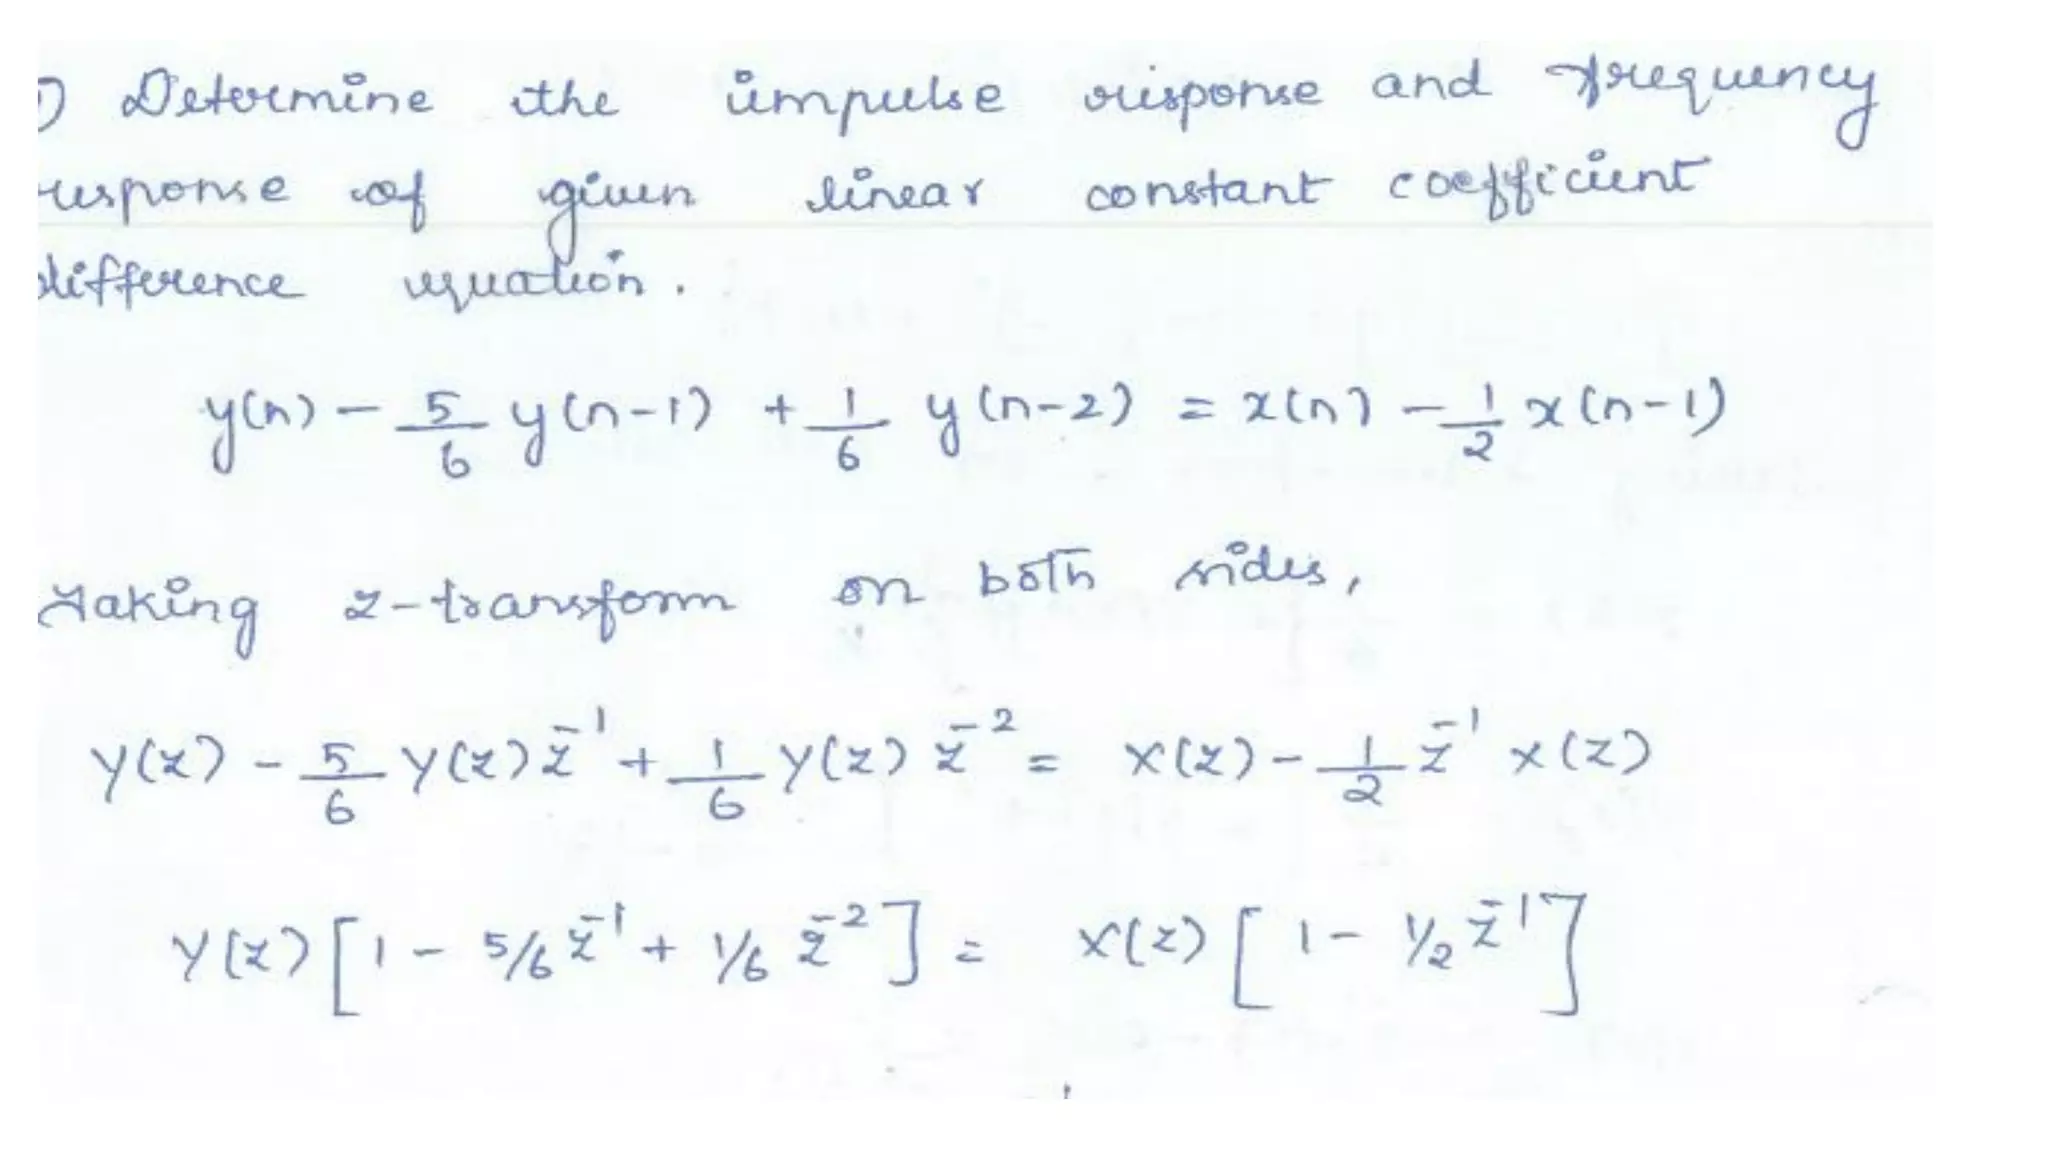 ) Determine the impulse response and frequency
response of given linear constant coefficient
difference equation.
y(n) - 5/6 y(n-1) + 1/6 y(n-2) = x(n) - 1/2 x(n-1)
Taking z-transform on both sides,
Y(z) - 5/6 Y(z) z⁻¹ + 1/6 Y(z) z⁻² = X(z) - 1/2 z⁻¹ X(z)
Y(z) [1 - 5/6 z⁻¹ + 1/6 z⁻²] = X(z) [1 - 1/2 z⁻¹]